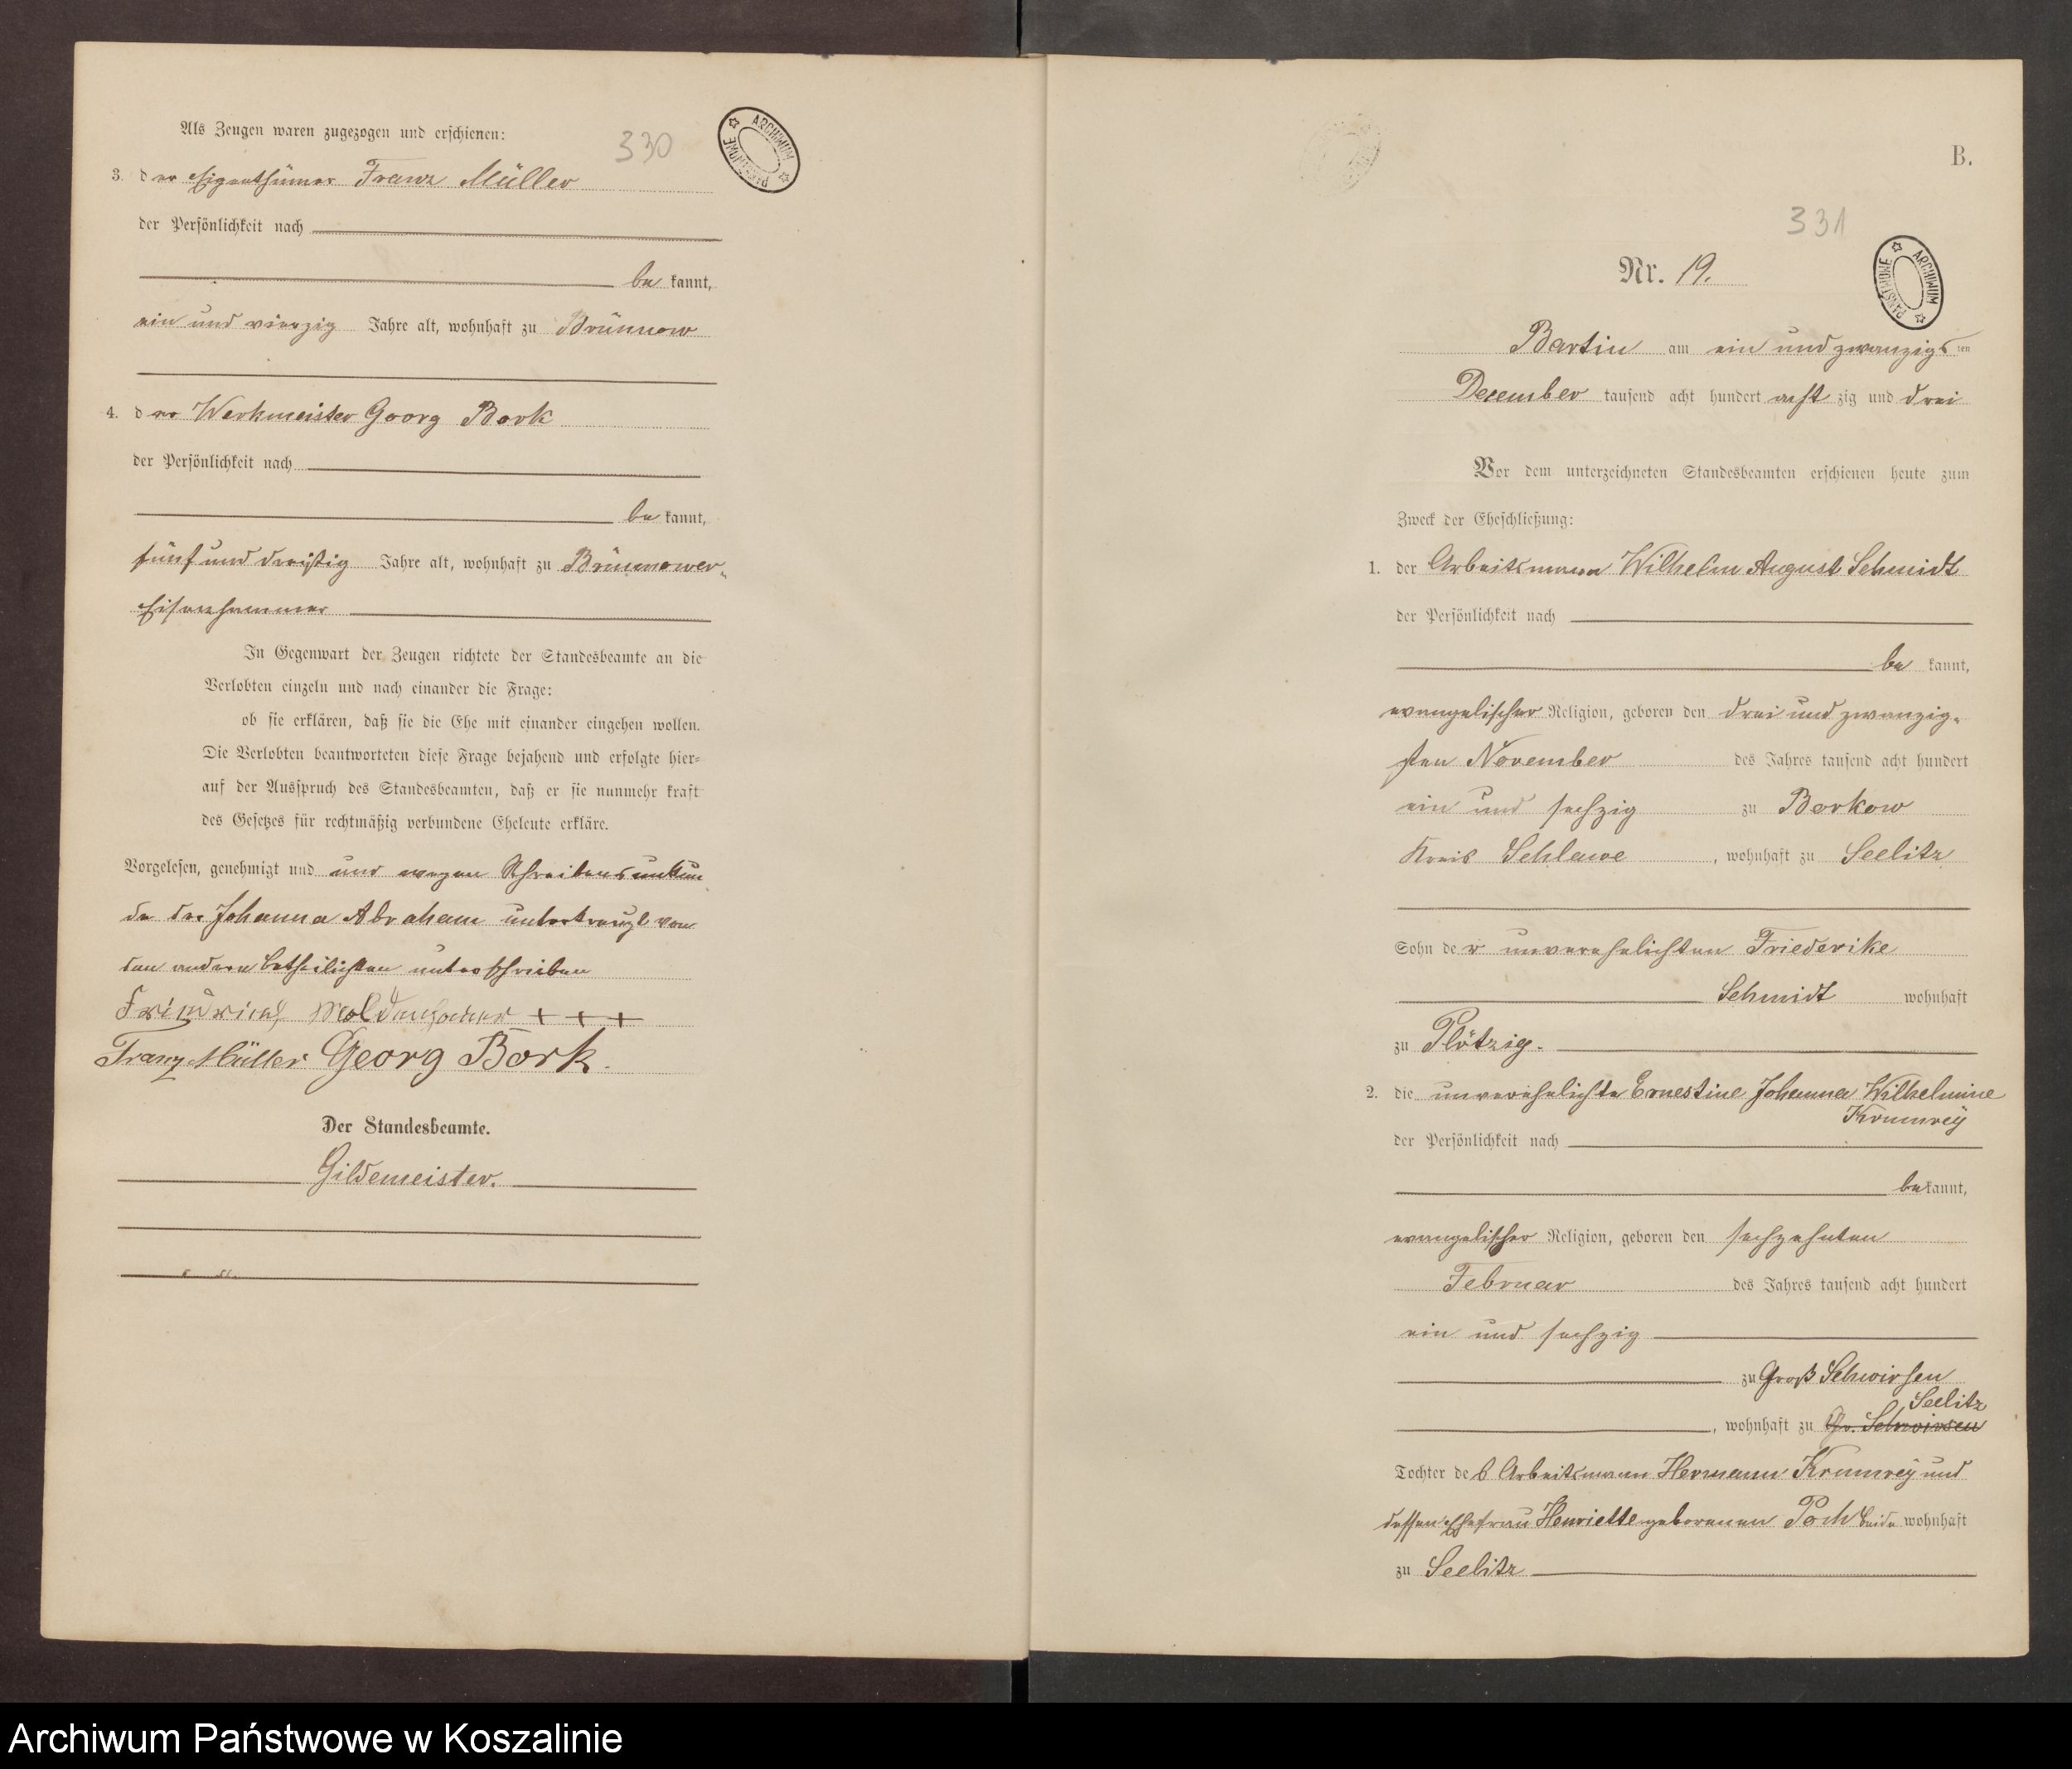 Als Zeugen waren zugezogen und erschienen:
330
ARCHIWUM PAŃSTWOWE
3. der Eigenthümer Franz Müller
der Persönlichkeit nach
be kannt,
ein und vierzig Jahre alt, wohnhaft zu Brünnow
4. der Werkmeister Georg Bork
der Persönlichkeit nach
be kannt,
fünf und dreißig Jahre alt, wohnhaft zu Brünnower-
Eisenhammer
In Gegenwart der Zeugen richtete der Standesbeamte an die
Verlobten einzeln und nach einander die Frage:
ob sie erklären, daß sie die Ehe mit einander eingehen wollen.
Die Verlobten beantworteten diese Frage bejahend und erfolgte hier-
auf der Ausspruch des Standesbeamten, daß er sie nunmehr kraft
des Gesetzes für rechtmäßig verbundene Eheleute erkläre.
Vorgelesen, genehmigt und und wegen Schreibensunkun
de der Johanna Abraham unterkreuzt von
den andern Betheiligten unterschrieben
Friedrich Moldenhauer + + +
Franz Müller Georg Bork.
Der Standesbeamte.
Gildemeister.
B.
331
ARCHIWUM PAŃSTWOWE
Nr. 19.
Bartin am ein und zwanzigs ten
December tausend acht hundert acht zig und drei
Vor dem unterzeichneten Standesbeamten erschienen heute zum
Zweck der Eheschließung:
1. der Arbeitsmann Wilhelm August Schmidt
der Persönlichkeit nach
be kannt,
evangelischer Religion, geboren den drei und zwanzig-
sten November des Jahres tausend acht hundert
ein und sechzig zu Borkow
Kreis Schlawe, wohnhaft zu Seelitz
Sohn der unverehelichten Friederike
Schmidt wohnhaft
zu Plötzig.
2. die unverehelichte Ernestine Johanna Wilhelmine
Krumrey
der Persönlichkeit nach
be kannt,
evangelischer Religion, geboren den sechzehnten
Februar des Jahres tausend acht hundert
ein und sechzig
zu Groß Schwirsen
Seelitz
, wohnhaft zu Gr. Schwirsen
Tochter des Arbeitsmann Hermann Krumrey und
dessen Ehefrau Henriette geborenen Poch beide wohnhaft
zu Seelitz
Archiwum Państwowe w Koszalinie